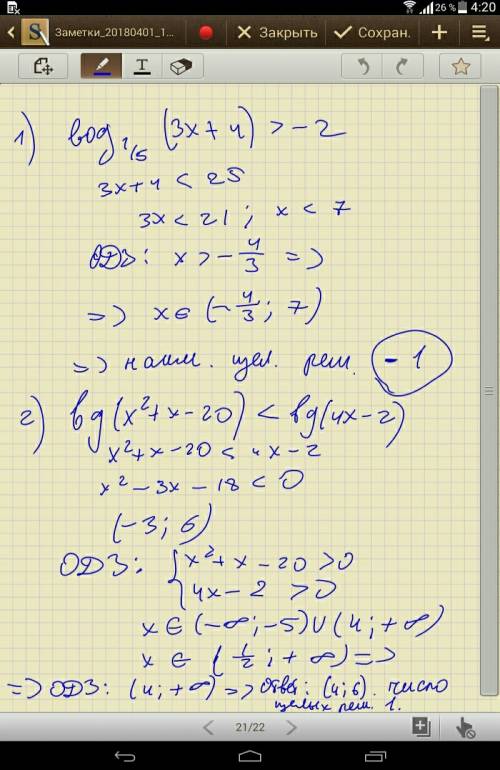 26 % 4:20
Заметки_20180401_1... Закрыть Сохран.
1) log 1/5 (3x+4) > -2
3x+4 < 25
3x < 21 ; x < 7
ОДЗ: x > -4/3 =>
=> x ∈ (-4/3 ; 7)
=> наим. цел. реш. -1
2) lg(x²+x-20) < lg(4x-2)
x²+x-20 < 4x-2
x²-3x-18 < 0
(-3; 6)
ОДЗ: { x²+x-20 > 0
4x-2 > 0
x ∈ (-∞; -5) ∪ (4; +∞)
x ∈ (1/2 ; +∞) =>
=> ОДЗ: (4; +∞) => ответ: (4; 6). число
целых реш. 1.
21/22